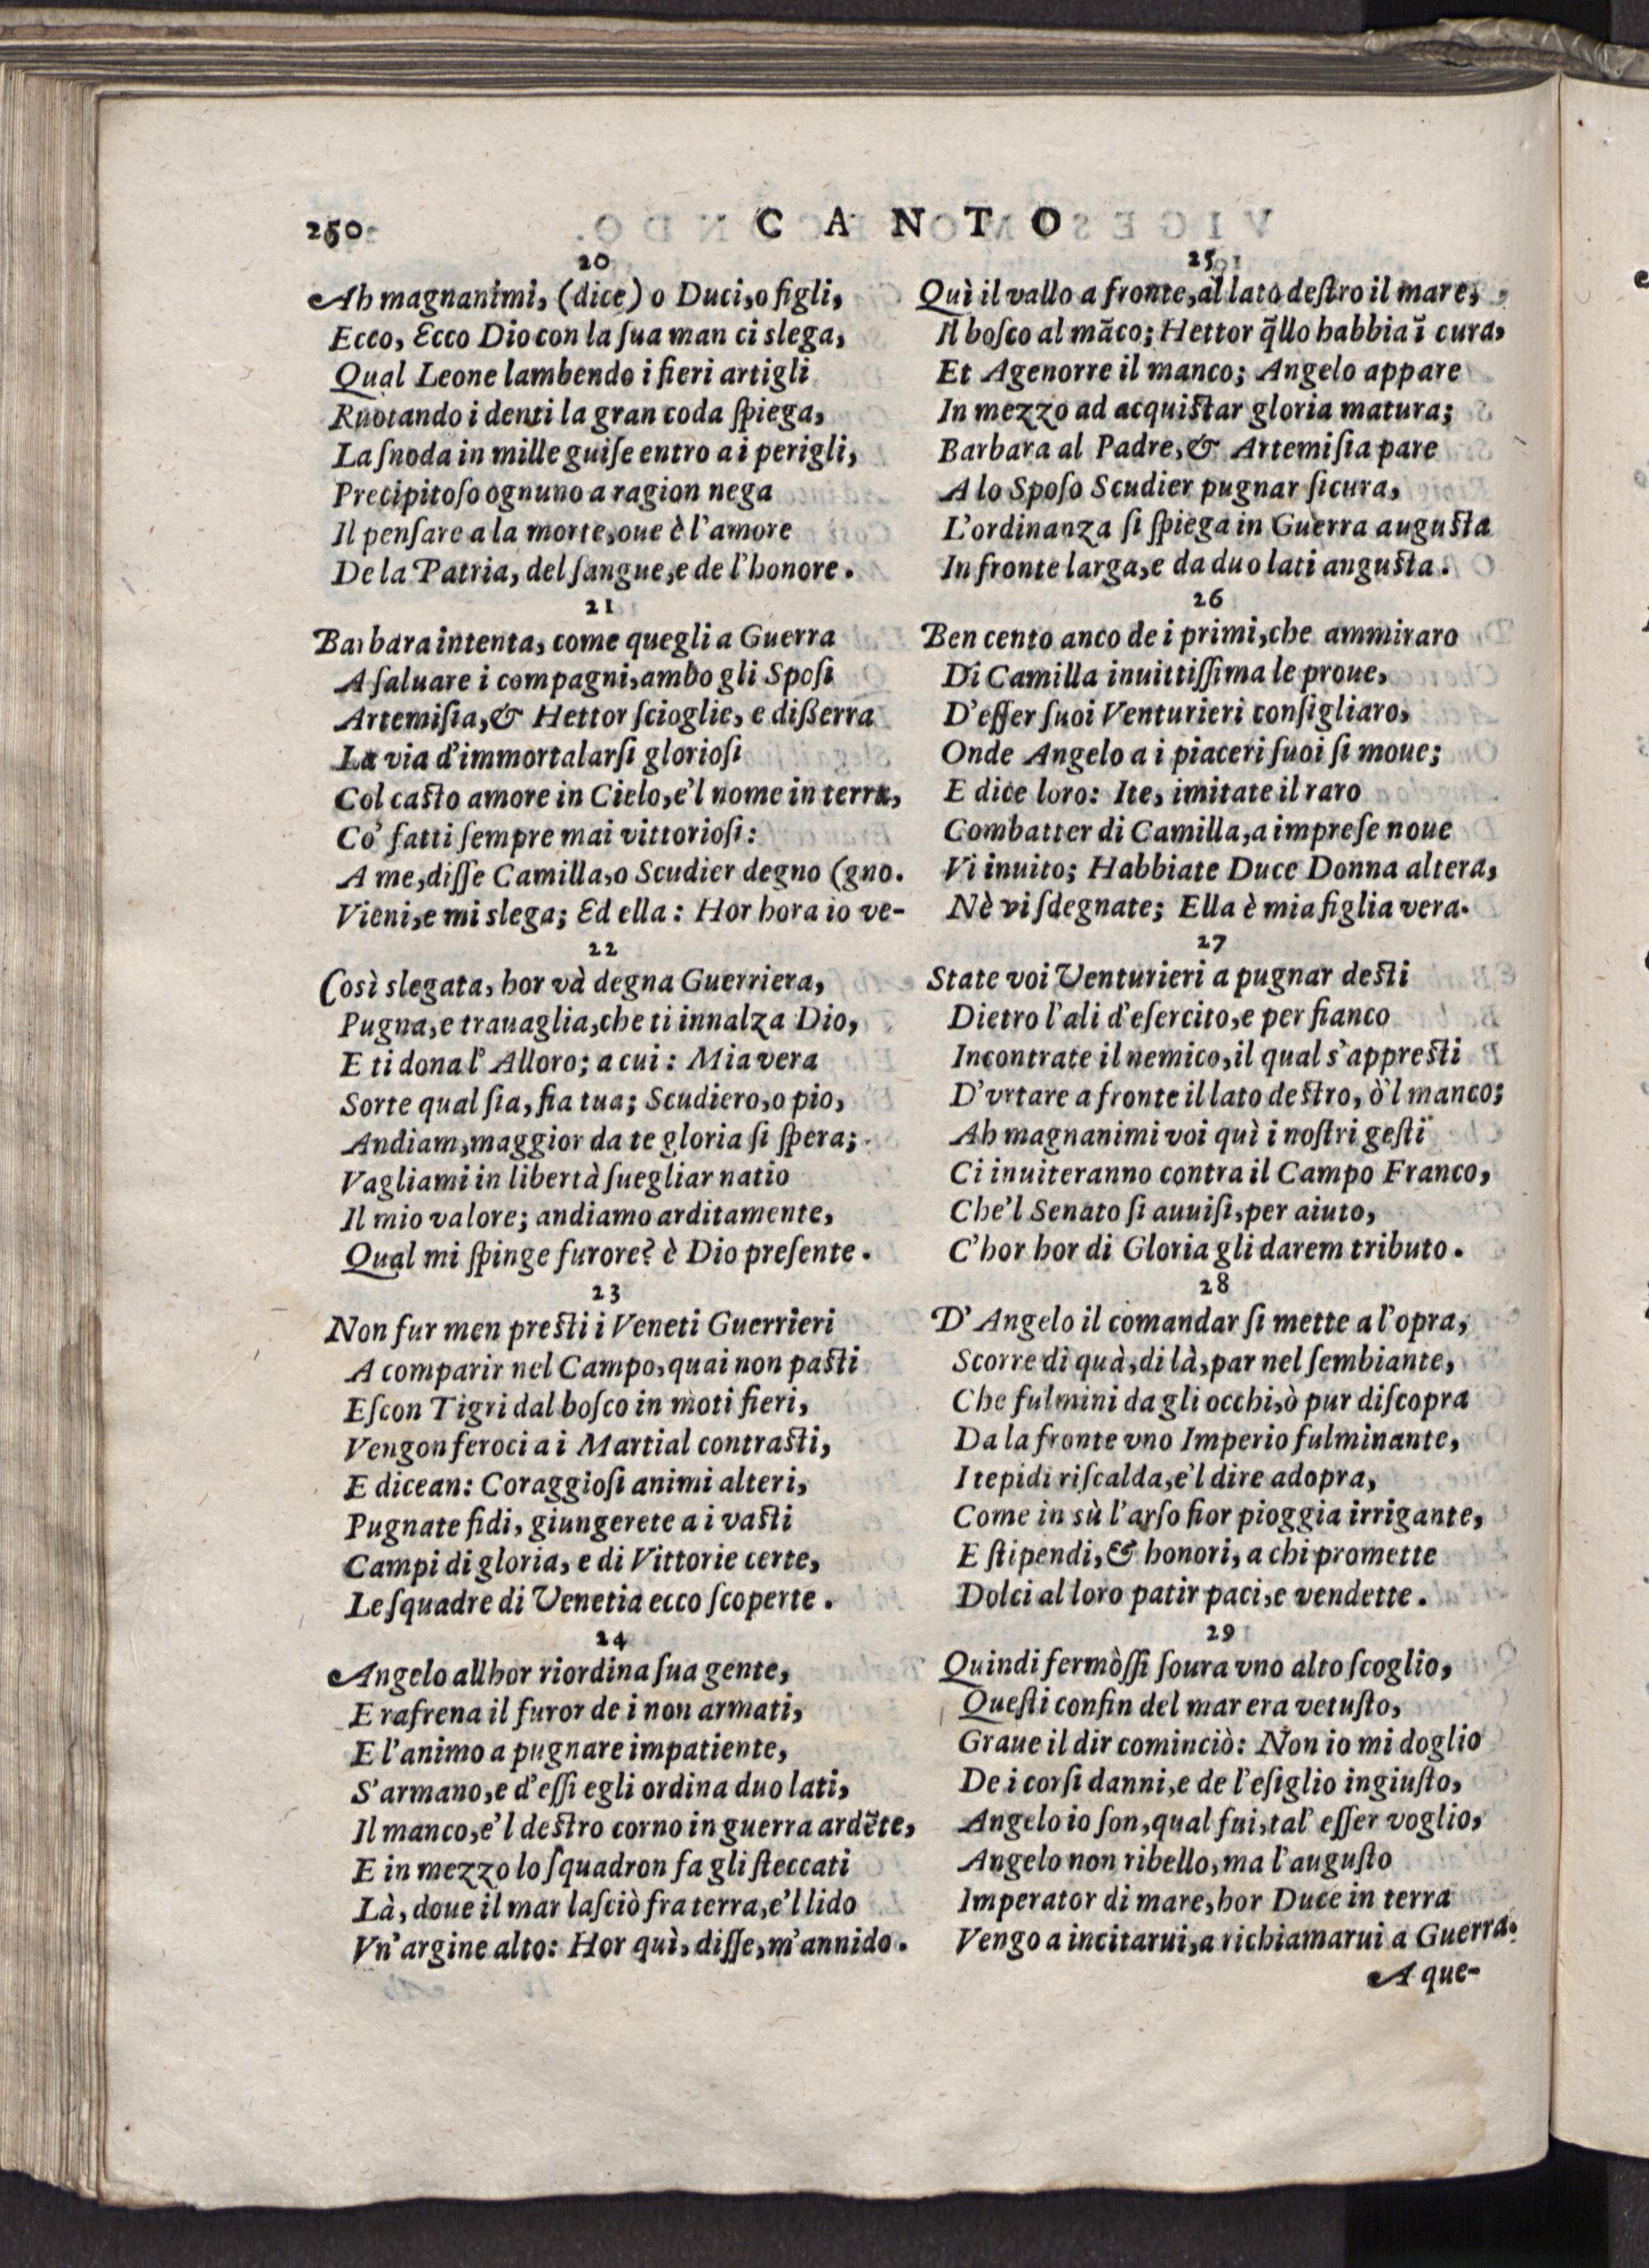 250
CANTO
20
Ah magnanimi, (dice) o Duci, o figli,
Ecco, Ecco Dio con la ſua man ci slega,
Qual Leone lambendo i fieri artigli
Ruotando i denti la gran coda ſpiega,
La ſnoda in mille guiſe entro a i perigli,
Precipitoſo ognuno a ragion nega
Il penſare a la morte, oue è l'amore
De la Patria, del ſangue, e de l'honore.
21
Barbara intenta, come quegli a Guerra
A ſaluare i compagni, ambo gli Spoſi
Artemiſia, & Hettor ſcioglie, e diſſerra
La via d'immortalarſi glorioſi
Col caſto amore in Cielo, e'l nome in terra,
Co' fatti ſempre mai vittorioſi:
A me, diſſe Camilla, o Scudier degno (gno.
Vieni, e mi slega; Ed ella: Hor hora io ve-
22
Così slegata, hor và degna Guerriera,
Pugna, e trauaglia, che ti innalza Dio,
E ti dona l'Alloro; a cui: Mia vera
Sorte qual ſia, fia tua; Scudiero, o pio,
Andiam, maggior da te gloria ſi ſpera;
Vagliami in libertà ſuegliar natio
Il mio valore; andiamo arditamente,
Qual mi ſpinge furore? è Dio preſente.
23
Non fur men preſti i Veneti Guerrieri
A comparir nel Campo, quai non paſti
Eſcon Tigri dal boſco in moti fieri,
Vengon feroci a i Martial contraſti,
E dicean: Coraggioſi animi alteri,
Pugnate fidi, giungerete a i vaſti
Campi di gloria, e di Vittorie certe,
Le ſquadre di Venetia ecco ſcoperte.
24
Angelo allhor riordina ſua gente,
E rafrena il furor de i non armati,
E l'animo a pugnare impatiente,
S'armano, e d'eſſi egli ordina duo lati,
Il manco, e'l deſtro corno in guerra ardẽte,
E in mezzo lo ſquadron fa gli ſteccati
Là, doue il mar laſciò fra terra, e'l lido
Vn'argine alto: Hor quì, diſſe, m'annido.
25
Quì il vallo a fronte, al lato deſtro il mare,
Il boſco al mãco; Hettor q̃llo habbia ĩ cura,
Et Agenorre il manco; Angelo appare
In mezzo ad acquiſtar gloria matura;
Barbara al Padre, & Artemiſia pare
A lo Spoſo Scudier pugnar ſicura,
L'ordinanza ſi ſpiega in Guerra auguſta
In fronte larga, e da duo lati anguſta.
26
Ben cento anco de i primi, che ammiraro
Di Camilla inuittiſſima le proue,
D'eſſer ſuoi Venturieri conſigliaro,
Onde Angelo a i piaceri ſuoi ſi moue;
E dice loro: Ite, imitate il raro
Combatter di Camilla, a impreſe noue
Vi inuito; Habbiate Duce Donna altera,
Nè vi ſdegnate; Ella è mia figlia vera.
27
State voi Venturieri a pugnar deſti
Dietro l'ali d'eſercito, e per fianco
Incontrate il nemico, il qual s'appreſti
D'vrtare a fronte il lato deſtro, ò'l manco;
Ah magnanimi voi quì i noſtri geſti
Ci inuiteranno contra il Campo Franco,
Che'l Senato ſi auuiſi, per aiuto,
C'hor hor di Gloria gli darem tributo.
28
D'Angelo il comandar ſi mette a l'opra,
Scorre di quà, di là, par nel ſembiante,
Che fulmini da gli occhi, ò pur diſcopra
Da la fronte vno Imperio fulminante,
I tepidi riſcalda, e'l dire adopra,
Come in sù l'arſo fior pioggia irrigante,
E ſtipendi, & honori, a chi promette
Dolci al loro patir paci, e vendette.
29
Quindi fermòſſi ſoura vno alto ſcoglio,
Queſti confin del mar era vetuſto,
Graue il dir cominciò: Non io mi doglio
De i corſi danni, e de l'eſiglio ingiuſto,
Angelo io ſon, qual fui, tal' eſſer voglio,
Angelo non ribello, ma l'auguſto
Imperator di mare, hor Duce in terra
Vengo a incitarui, a richiamarui a Guerra.
A que-